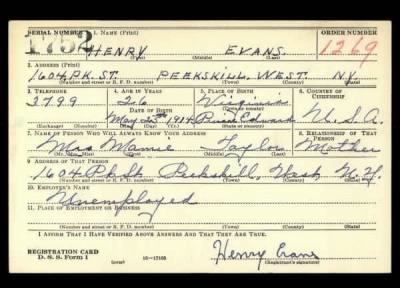 SERIAL NUMBER 1. NAME (Print) ORDER NUMBER
1752 HENRY EVANS 1269
(First) (Middle) (Last)
2. ADDRESS (Print)
1604 PK. ST. PEEKSKILL, WEST. N.Y.
(Number and street or R. F. D. number) (Town) (County) (State)
3. TELEPHONE 4. AGE IN YEARS 5. PLACE OF BIRTH 6. COUNTRY OF CITIZENSHIP
2799 26 Virginia
DATE OF BIRTH
May 25th 1914 Prince Edward U.S.A.
(Exchange) (Mo.) (Day) (Yr.) (Town or county) (State or country)
7. NAME OF PERSON WHO WILL ALWAYS KNOW YOUR ADDRESS 8. RELATIONSHIP OF THAT PERSON
Mrs Mamie Taylor Mother
(Mr., Mrs., Miss) (First) (Middle) (Last)
9. ADDRESS OF THAT PERSON
1604 Pk St Peekskill, West N.Y.
(Number and street or R. F. D. number) (Town) (County) (State)
10. EMPLOYER'S NAME
Unemployed
11. PLACE OF EMPLOYMENT OR BUSINESS
(Number and street or R. F. D. number) (Town) (County) (State)
I AFFIRM THAT I HAVE VERIFIED ABOVE ANSWERS AND THAT THEY ARE TRUE.
Henry Evans
REGISTRATION CARD
D. S. S. Form 1 (over) 16—17105 (Registrant's signature)